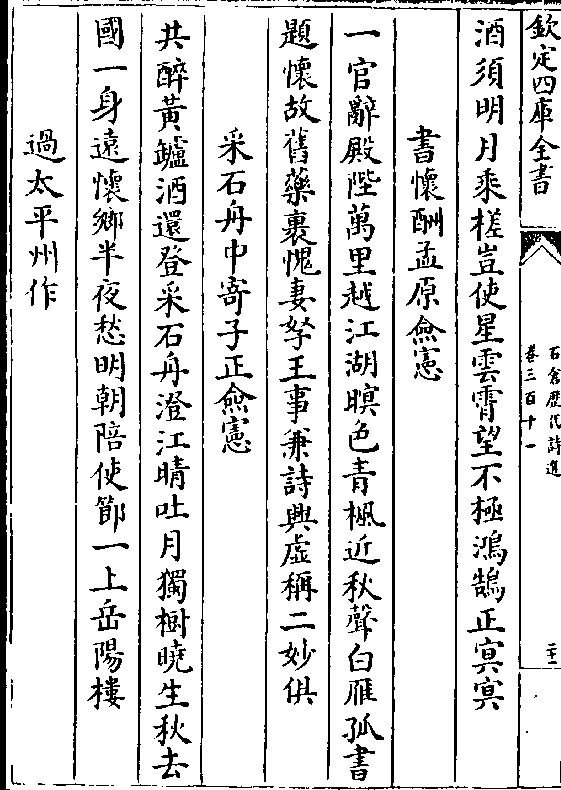 欽定四庫全書
石倉歷代詩選
卷三百十一
二十一
酒須明月乘槎豈使星雲霄望不極鴻鵠正寘寘
書懷酬孟原僉憲
一官辭殿陛萬里越江湖暝色青楓近秋聲白雁孤書
題懷故舊藥裹愧妻孥王事兼詩興虛稱二妙俱
采石舟中寄子正僉憲
共醉黃鑪酒還登采石舟澄江晴吐月獨樹曉生秋去
國一身遠懷鄉半夜愁明朝陪使節一上岳陽樓
過太平州作